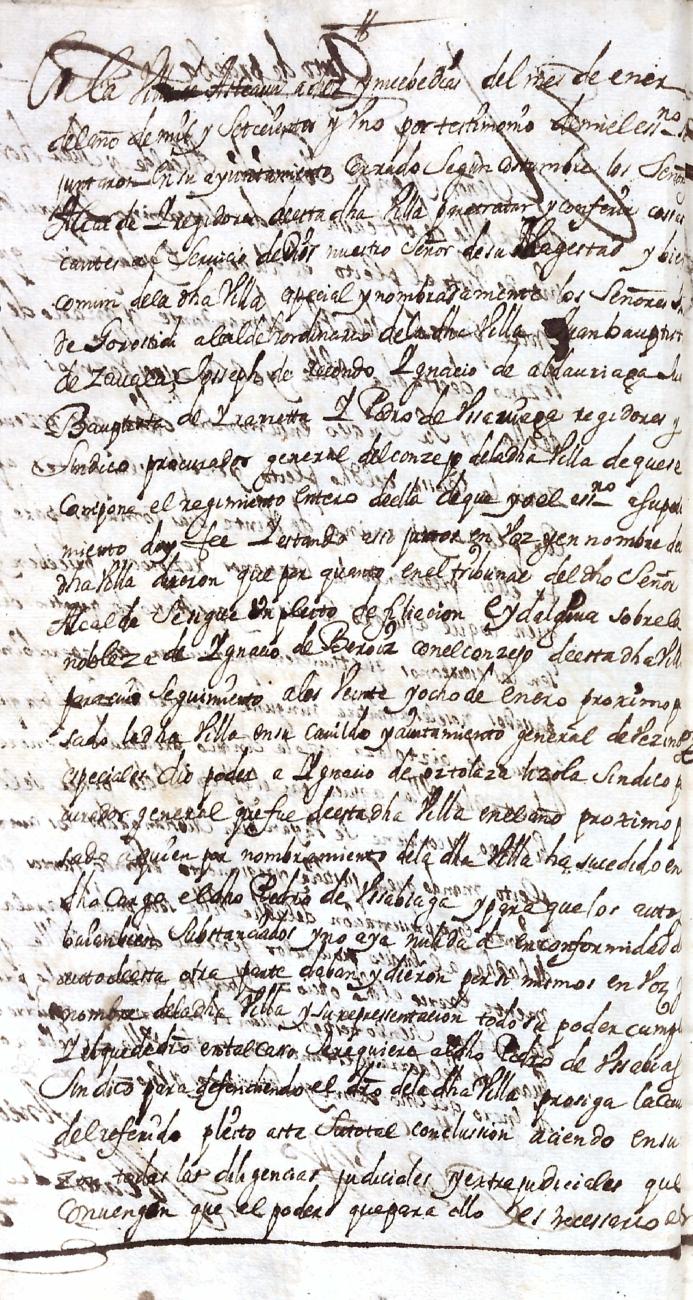 En la Villa de Asteasu a diez y nuebe dias del mes de ener
del año de mill y Setecientos y Uno por testimonio de mi el essno
juntaron en su ayuntamiento cerrado segun costumbre los Señor
Alcalde Y regidores de esta dha Villa para tratar y conferir cosas
cantes al Servicio de Dios nuestro Señor de su Magestad y bie
comun de la dha Villa especial y nombradamente los Señores
de Gorostidi alcalde hordinario de la dha Villa Juan bauptist
de Zavala Joseph de Ygnacio de aldauriaga Ju
Bauptista de Yrarretta Y Pedro de Ussaviaga regidores y
Sindico procurador general del conzejo de la dha Villa de que se
Compone el regimiento entero de ella de que yo el essno
miento doy fee Y estando assi juntos en Voz y en nombre de
dha Villa dixeron que por quanto en el tribunal del dho Señor
Alcalde Se sigue un pleito de filiacion e ydalguia sobre la
nobleza de Ygnacio de Beroiz con el conzejo de esta dha Vill
para cuio Seguimiento a los Veinte y ocho de Enero proximo p
sado la dha Villa en su Cavildo y aiuntamiento general de Vezin
especiales dio poder a Ygnacio de ortolaza lizola Sindico p
curador general que fue de esta dha Villa en el año proximo p
sado a quien por nombramiento de la dha Villa ha sucedido en
dho Cargo el dho Pedro de Ussabiaga y para que los autos
baian bien Substanciados y no aya nulidad en conformidad d
auto de esta otra parte daban y dieron por si mismos en Voz y
nombre de la dha Villa y su representacion todo su poder cumpl
Y el que de dro en tal caso Se requiere al dho Pedro de Ussabiag
Sindico para que defendiendo el dro de la dha Villa prosiga la cau
del referido pleito asta Su total conclussion aciendo en su
zon todas las diligencias judiciales y extrajudiciales que
Convengan que el poder que para ello es necessario es